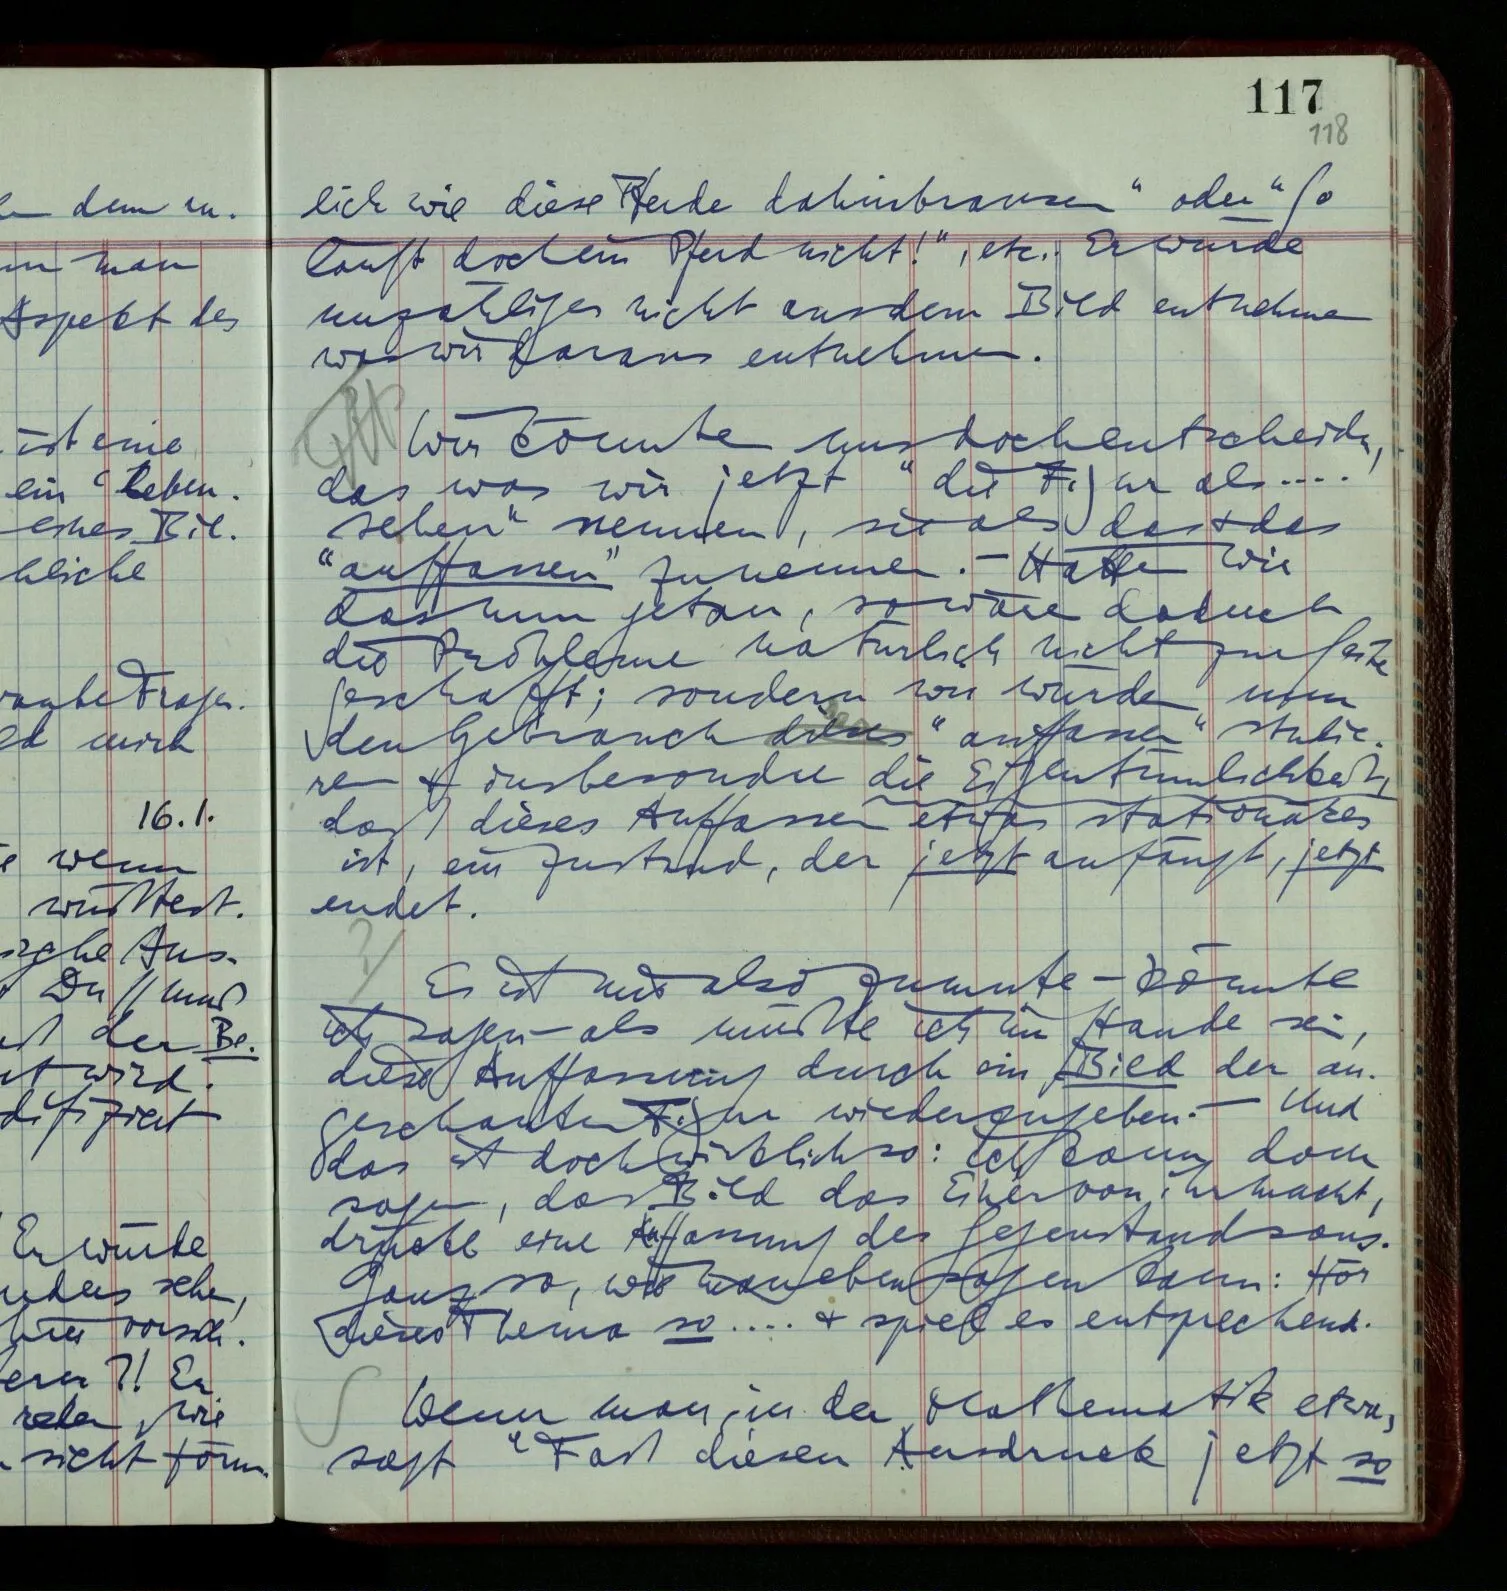 n dem en.
nn man
Aspekt des
ist eine
ein "Leben.
eines Bil.
hliche
Fragen.
mich
16.1.
wenn
wüßtest.
Aus.
Du
der Be.
wird.
difiziert
Er würde
anders sehen,
vorsch.
Er
reden, wie
sieht förm.
117
118
lich wie diese Pferde dahinbrausen" oder "So
läuft doch ein Pferd nicht!", etc.. Er würde
unzähliges nicht aus dem Bild entnehmen
was wir daraus entnehmen.
Wir könnten uns doch entscheiden,
das was wir jetzt "die Figur als....
sehen" nennen, sie als das & das
"auffassen" zu nennen. – Hätten wir
das nun getan, so wäre dadurch
die Probleme natürlich nicht zur Seite
geschafft; sondern wir würden nun
den Gebrauch "auffassen" studie.
ren & insbesondere die Eigentümlichkeit,
daß dieses Auffassen etwas stationäres
ist, ein Zustand, der jetzt anfängt, jetzt
endet.
?/
Es ist mir also zumute – könnte
ich sagen – als müßte ich im Stande sein,
diese Auffassung durch ein Bild der an.
geschauten Figur wiederzugeben. – Und
das ist doch wirklich so: Ich kann doch
sagen, das Bild das Einer von ihr macht,
drücke eine Auffassung des Gegenstands aus.
Ganz so, wie man eben sagen kann: Hör
dieses Thema so .... & spiel es entsprechend.
Wenn man, in der Mathematik etwa,
sagt "Faß diesen Ausdruck jetzt so